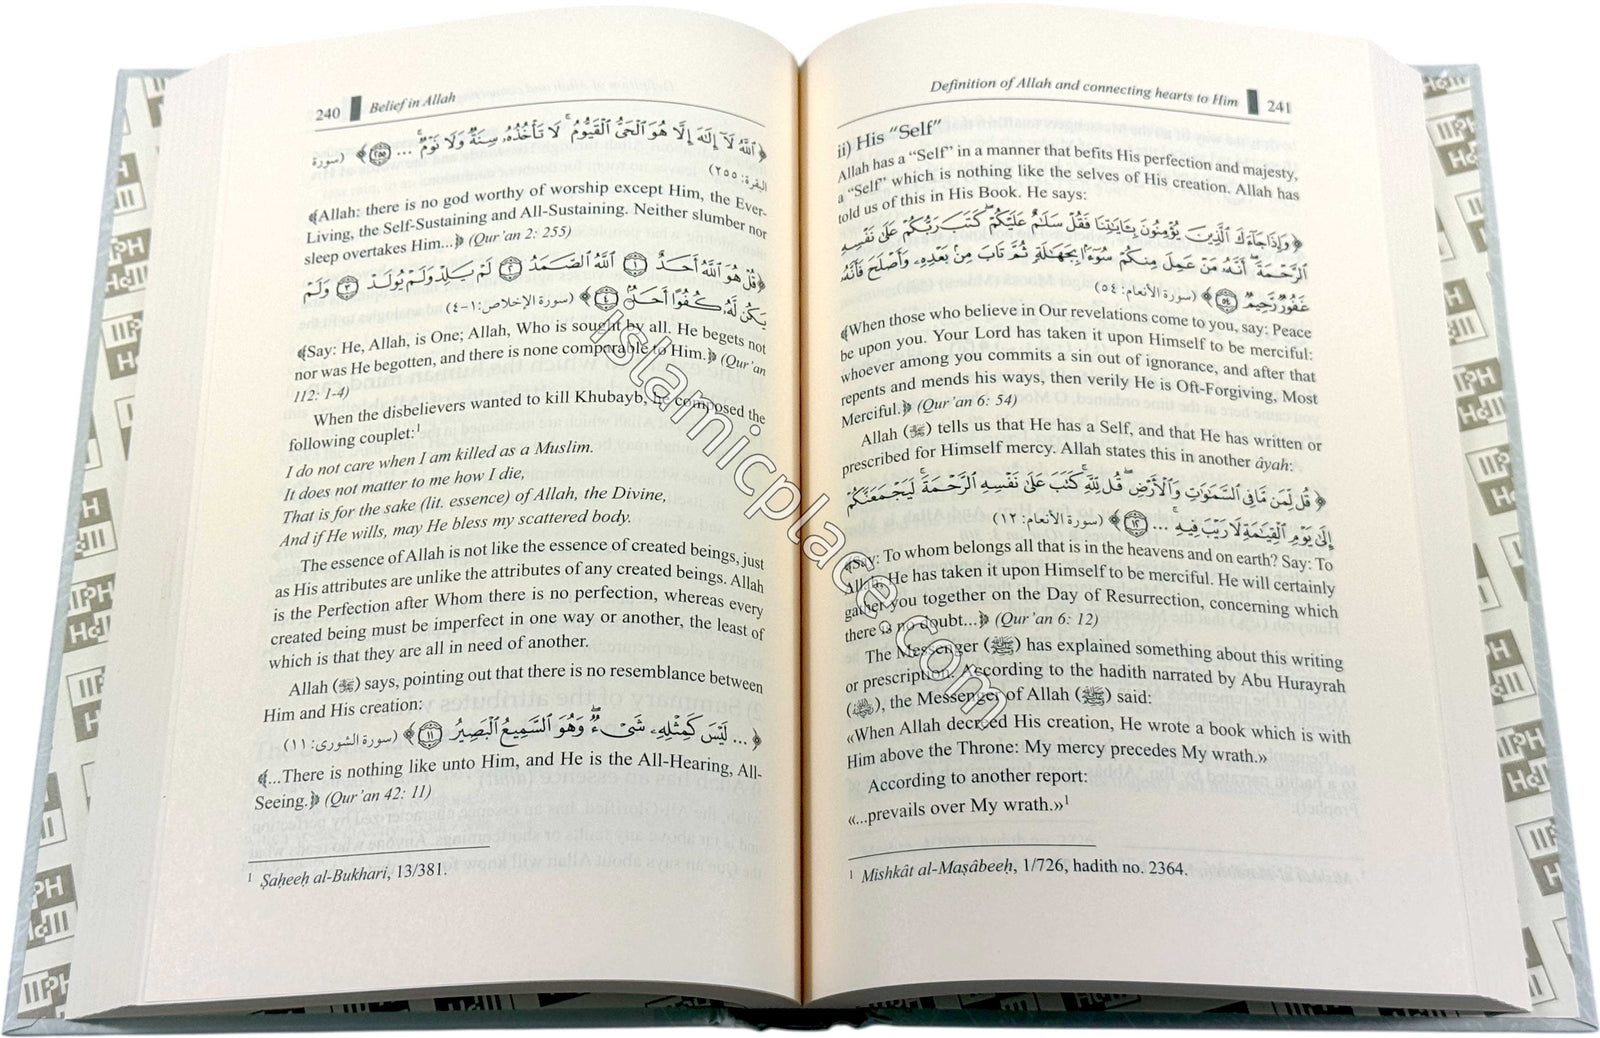 240 Belief in Allah
﴿ٱللَّهُ لَآ إِلَٰهَ إِلَّا هُوَ ٱلْحَىُّ ٱلْقَيُّومُ ۚ لَا تَأْخُذُهُۥ سِنَةٌ وَلَا نَوْمٌ ۚ ... ۝٢٥٥﴾ (سورة
البقرة: ٢٥٥)
﴾Allah: there is no god worthy of worship except Him, the Ever-
Living, the Self-Sustaining and All-Sustaining. Neither slumber nor
sleep overtakes Him...﴿ (Qur'an 2: 255)
﴿قُلْ هُوَ ٱللَّهُ أَحَدٌ ۝١ ٱللَّهُ ٱلصَّمَدُ ۝٢ لَمْ يَلِدْ وَلَمْ يُولَدْ ۝٣ وَلَمْ
يَكُن لَّهُۥ كُفُوًا أَحَدٌۢ ۝٤﴾ (سورة الإخلاص: ١-٤)
﴾Say: He, Allah, is One; Allah, Who is sought by all. He begets not
nor was He begotten, and there is none comparable to Him.﴿ (Qur'an
112: 1-4)
When the disbelievers wanted to kill Khubayb, he composed the
following couplet:¹
I do not care when I am killed as a Muslim.
It does not matter to me how I die,
That is for the sake (lit. essence) of Allah, the Divine,
And if He wills, may He bless my scattered body.
The essence of Allah is not like the essence of created beings, just
as His attributes are unlike the attributes of any created beings. Allah
is the Perfection after Whom there is no perfection, whereas every
created being must be imperfect in one way or another, the least of
which is that they are all in need of another.
Allah (ﷻ) says, pointing out that there is no resemblance between
Him and His creation:
﴿... لَيْسَ كَمِثْلِهِۦ شَىْءٌ ۖ وَهُوَ ٱلسَّمِيعُ ٱلْبَصِيرُ ۝١١﴾ (سورة الشورى: ١١)
﴾...There is nothing like unto Him, and He is the All-Hearing, All-
Seeing.﴿ (Qur'an 42: 11)
¹ Ṣaḥeeḥ al-Bukhari, 13/381.
Definition of Allah and connecting hearts to Him 241
ii) His “Self”
Allah has a “Self” in a manner that befits His perfection and majesty,
a “Self” which is nothing like the selves of His creation. Allah has
told us of this in His Book. He says:
﴿وَإِذَا جَآءَكَ ٱلَّذِينَ يُؤْمِنُونَ بِـَٔايَٰتِنَا فَقُلْ سَلَٰمٌ عَلَيْكُمْ ۖ كَتَبَ رَبُّكُمْ عَلَىٰ نَفْسِهِ
ٱلرَّحْمَةَ ۖ أَنَّهُۥ مَنْ عَمِلَ مِنكُمْ سُوٓءًۢا بِجَهَٰلَةٍ ثُمَّ تَابَ مِنۢ بَعْدِهِۦ وَأَصْلَحَ فَأَنَّهُۥ
غَفُورٌ رَّحِيمٌ ۝٥٤﴾ (سورة الأنعام: ٥٤)
﴾When those who believe in Our revelations come to you, say: Peace
be upon you. Your Lord has taken it upon Himself to be merciful:
whoever among you commits a sin out of ignorance, and after that
repents and mends his ways, then verily He is Oft-Forgiving, Most
Merciful.﴿ (Qur'an 6: 54)
Allah (ﷻ) tells us that He has a Self, and that He has written or
prescribed for Himself mercy. Allah states this in another âyah:
﴿قُل لِّمَن مَّا فِى ٱلسَّمَٰوَٰتِ وَٱلْأَرْضِ ۖ قُل لِّلَّهِ ۚ كَتَبَ عَلَىٰ نَفْسِهِ ٱلرَّحْمَةَ ۚ لَيَجْمَعَنَّكُمْ
إِلَىٰ يَوْمِ ٱلْقِيَٰمَةِ لَا رَيْبَ فِيهِ ۚ ... ۝١٢﴾ (سورة الأنعام: ١٢)
﴾Say: To whom belongs all that is in the heavens and on earth? Say: To
Allah. He has taken it upon Himself to be merciful. He will certainly
gather you together on the Day of Resurrection, concerning which
there is no doubt...﴿ (Qur'an 6: 12)
The Messenger (ﷺ) has explained something about this writing
or prescription. According to the hadith narrated by Abu Hurayrah
(رضي الله عنه), the Messenger of Allah (ﷺ) said:
«When Allah decreed His creation, He wrote a book which is with
Him above the Throne: My mercy precedes My wrath.»
According to another report:
«...prevails over My wrath.»¹
¹ Mishkât al-Maṣâbeeḥ, 1/726, hadith no. 2364.
Islamicplace.com
IIPH